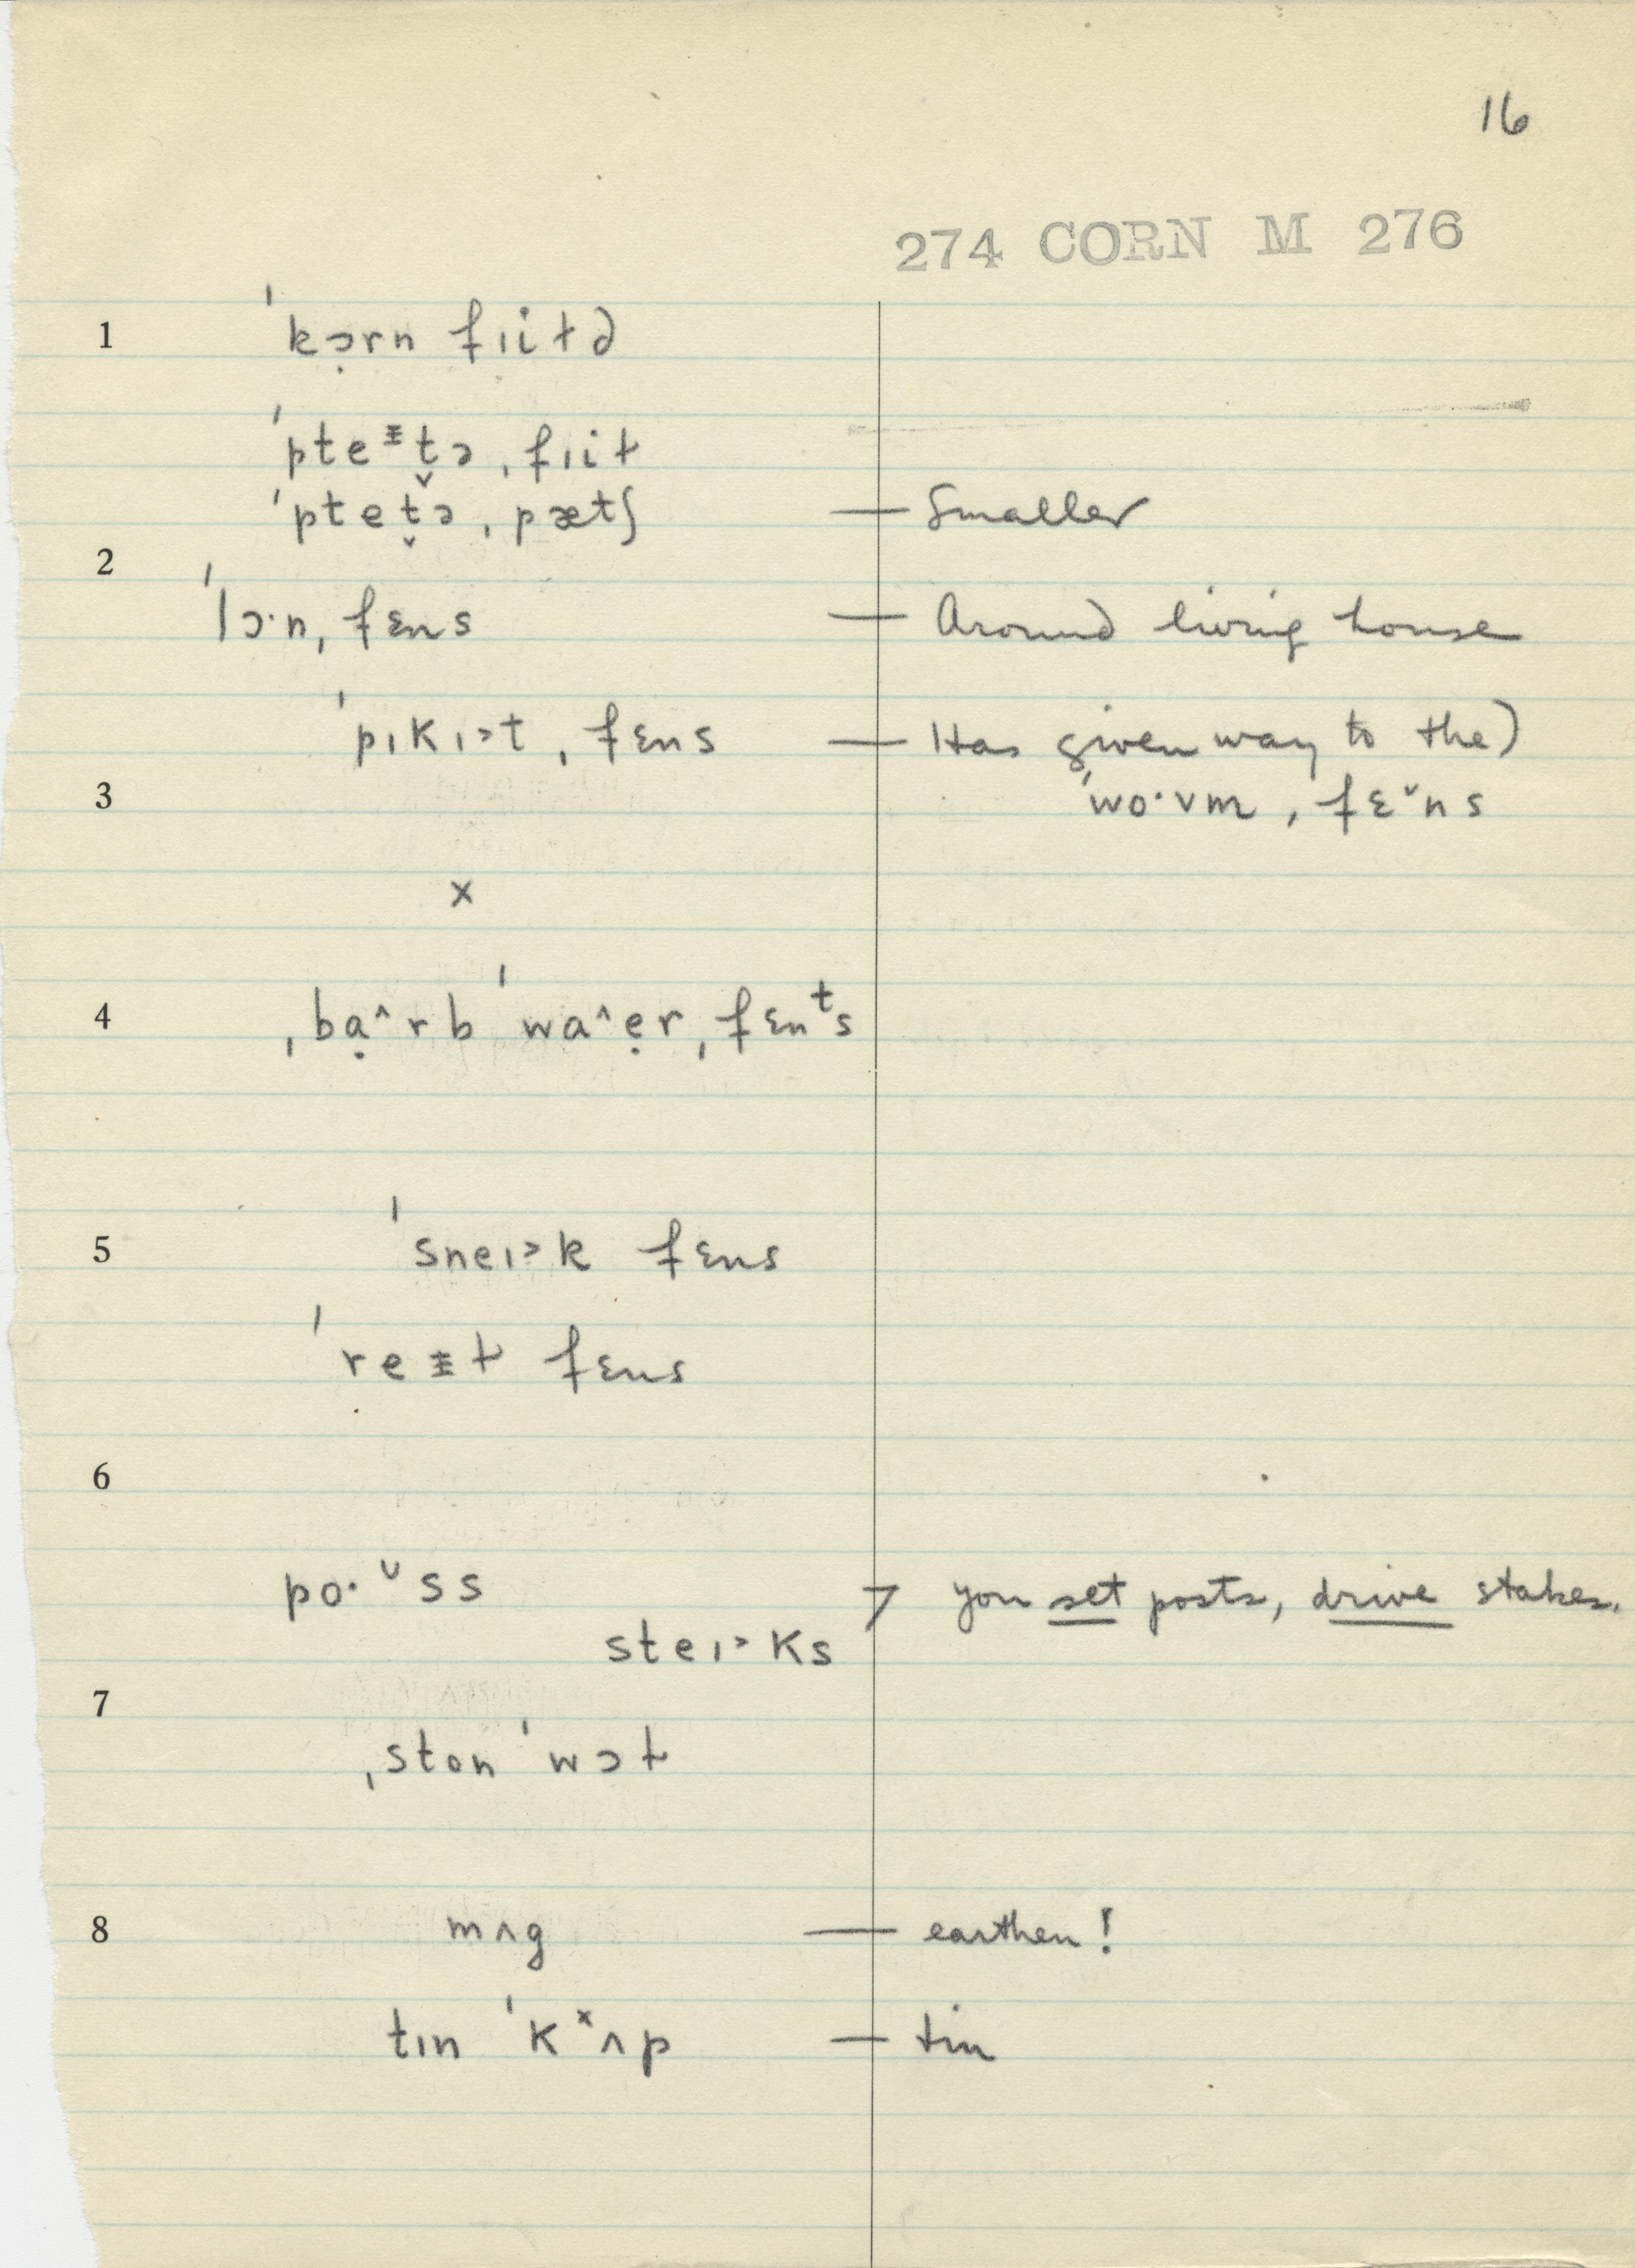 16
274 CORN M 276
1 ˈkɔ̣rn fɪiɫd
ˈpteᵻt̬ə ˌfɪiɫ
ˈptet̬ə ˌpætʃ — Smaller
2
ˈlɔ·n ˌfɛns — Around living house
ˈpɪkɪ>t ˌfɛns — Has given way to the)
3 ˈwo·vm ˌfɛˇns
x
4 ˌbạ^rb ˈwa^ẹr ˌfɛnᵗs
5 ˈsneɪ>k fɛns
ˈreᵻɫ fɛns
6
po·ᵛss > you set posts, drive stakes.
steɪ>ks
7
ˌston ˈwɔɫ
8 mʌg — earthen!
tɪn ˈkˣʌp — tin